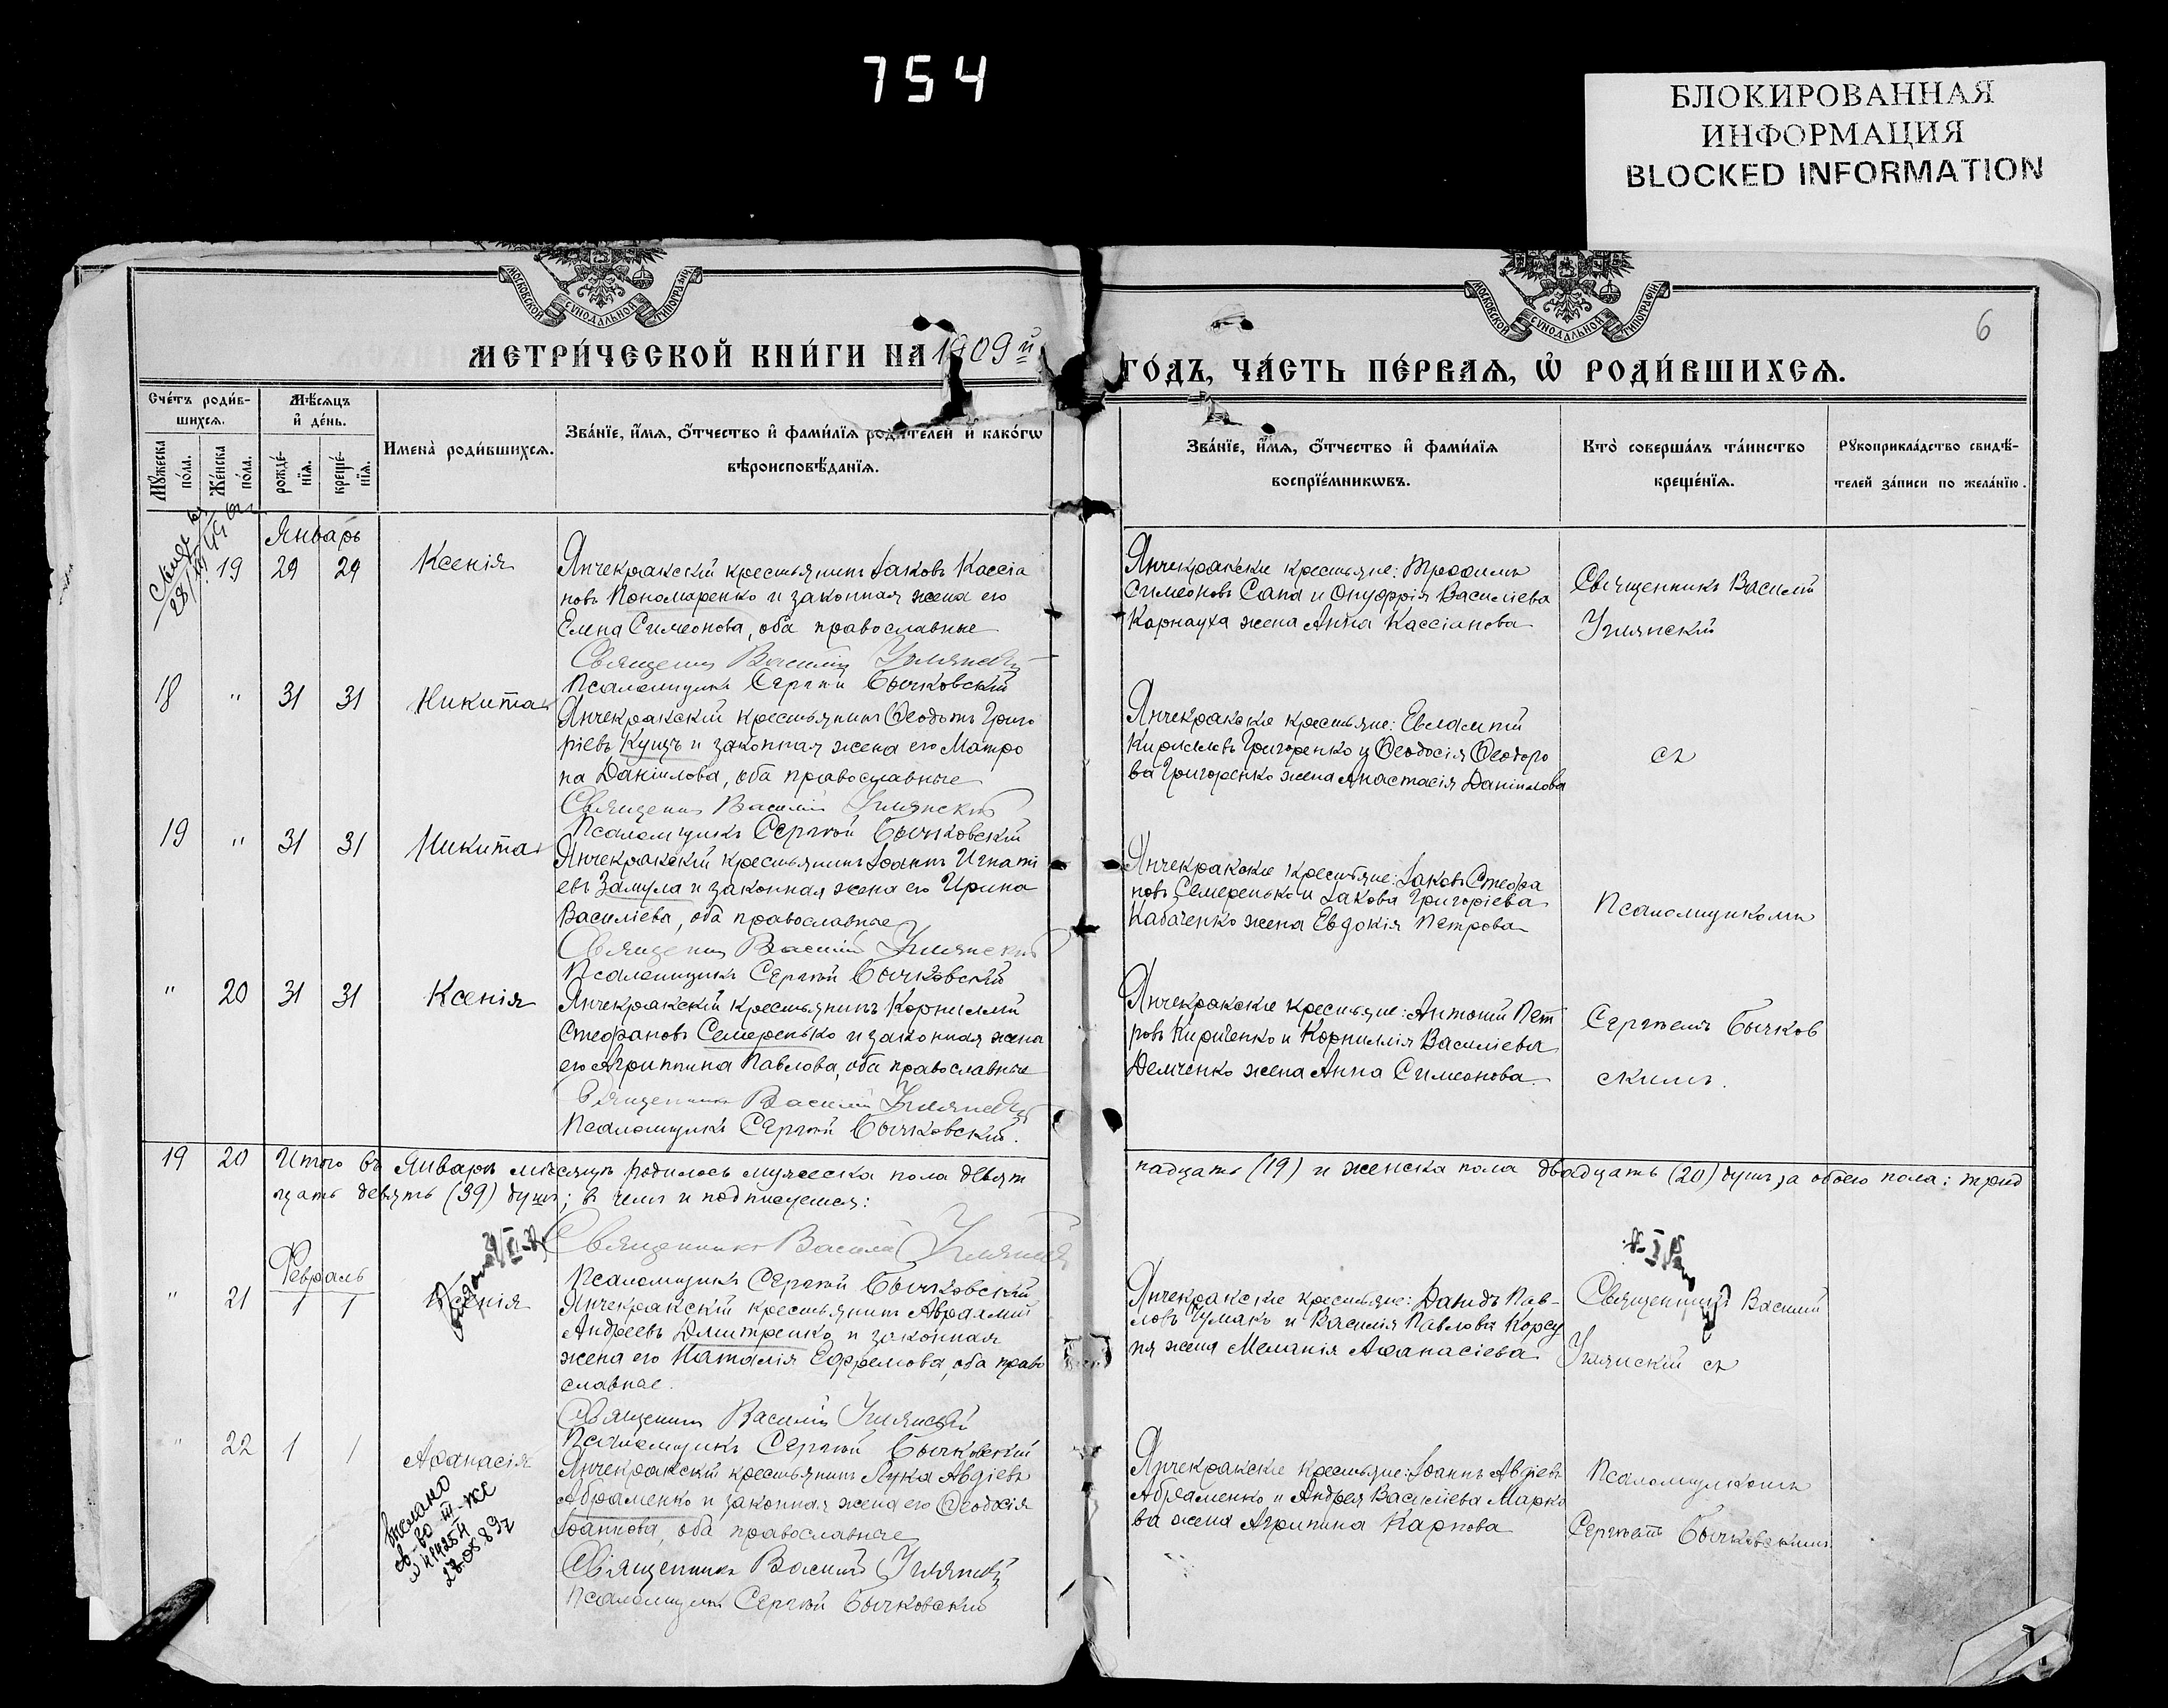 754
БЛОКИРОВАННАЯ
ИНФОРМАЦИЯ
BLOCKED INFORMATION
МОСКОВСКОЙ СѴНОДАЛЬНОЙ ТИПОГРАФІИ
МОСКОВСКОЙ СѴНОДАЛЬНОЙ ТИПОГРАФІИ
6
МЕТРИ́ЧЕСКОЙ КНИ́ГИ НА 1909й
ГО́ДЪ, ЧА́СТЬ ПЕ́РВАѦ, Ѡ҆ РОДИ́ВШИХСѦ.
Сче́тъ роди́в-
шихсѧ.
Мꙋжеска по́ла.
Же́нска по́ла.
Мѣ́сѧцъ
и҆ де́нь.
рожде́-
нїѧ.
креще́-
нїѧ.
Имена̀ роди́вшихсѧ.
Зва́нїе, и҆́мѧ, ѻ҆́тчество и҆ фами́лїѧ роди́телей и҆ како́гѡ
вѣроисповѣ́данїѧ.
Зва́нїе, и҆́мѧ, ѻ҆́тчество и҆ фами́лїѧ
воспрїе́мникѡвъ.
Кто̀ соверша́лъ та́инство
креще́нїѧ.
Рꙋкоприкла́дство свидѣ́-
телей за́писи по жела́нїю.
Январь
19 29 29 Ксенія
Янчекракскій крестьянинъ Іаковъ Кассіа
новъ Пономаренко и законная жена его
Елена Симеонова, оба православные
Священникъ Василій Углянскій
Псаломщикъ Сергѣй Бычковскій
Янчекракскіе крестьяне: Трофимъ
Симеоновъ Сапа и Онуфрія Василіева
Карнауха жена Анна Кассіанова
Священникъ Василій
Углянскій
18 " 31 31 Никита
Янчекракскій крестьянинъ Ѳеодотъ Григо
ріевъ Куцъ и законная жена его Матро
на Даніилова, оба православные
Священникъ Василій Углянскій
Псаломщикъ Сергѣй Бычковскій
Янчекракскіе крестьяне: Евлампій
Кирилловъ Григоренко и Ѳеодосія Ѳеодоро
ва Григоренко жена Анастасія Даніилова
съ
19 " 31 31 Никита
Янчекракскій крестьянинъ Іоаннъ Игнаті
евъ Замула и законная жена его Ирина
Василіева, оба православные
Священникъ Василій Углянскій
Псаломщикъ Сергѣй Бычковскій
Янчекракскіе крестьяне: Іаковъ Стефа
новъ Семеренько и Іакова Григоріева
Кабаченко жена Евдокія Петрова
Псаломщикомъ
" 20 31 31 Ксенія
Янчекракскій крестьянинъ Корнилій
Стефановъ Семеренько и законная жена
его Агриппина Павлова, оба православные
Священникъ Василій Углянскій
Псаломщикъ Сергѣй Бычковскій.
Янчекракскіе крестьяне: Антоній Пет
ровъ Кириченко и Корнилія Василіева
Демченко жена Анна Симеонова
Сергѣемъ Бычков
скимъ.
19 20 Итого въ Январѣ мѣсяцѣ родилось мужеска пола девят
надцать (19) и женска пола двадцать (20) душъ, а обоего пола: трид
цать девять (39) душъ; в чемъ и подписуемся:
Священникъ Василій Углянскій
Псаломщикъ Сергѣй Бычковскій
Февраль
" 21 1 1 Ксенія
Янчекракскій крестьянинъ Авраамій
Андреевъ Дмитренко и законная
жена его Наталія Ефремова, оба право
славные.
Священникъ Василій Углянскій
Псаломщикъ Сергѣй Бычковскій
Янчекракскіе крестьяне: Давидъ Пав-
ловъ Чумакъ и Василія Павлова Корсу
ня жена Меланія Аѳанасіева
Священникъ Василій
Углянскій съ
" 22 1 1 Аѳанасія
28.08.89г
Янчекракскій крестьянинъ Лука Авдіевъ
Абраменко и законная жена его Ѳеодосія
Іоаннова, оба православные
Священникъ Василій Углянскій
Псаломщикъ Сергѣй Бычковскій
Янчекракскіе крестьяне: Іоаннъ Авдіевъ
Абраменко и Андрея Василіева Марко
ва жена Агрипина Карпова
Псаломщикомъ
Сергѣемъ Бычковскимъ